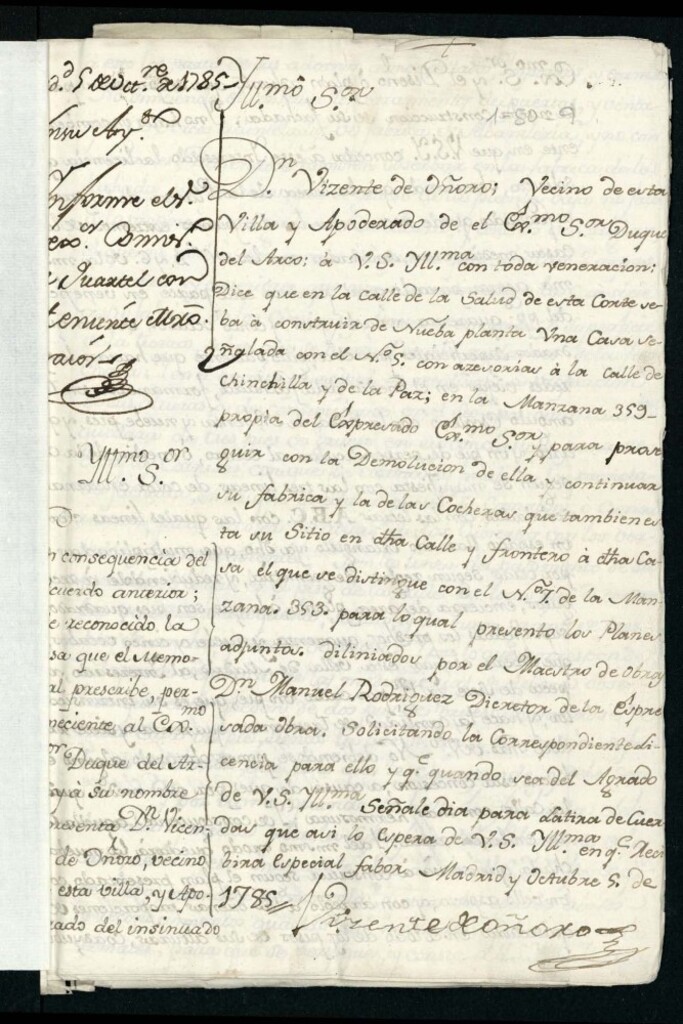 d 5 de Oct.re de 1785
Informe el S.r
Cuartel con
teniente
Yll.mo S.or
consequencia del
cuerdo anterior;
e reconocido la
sa que el Memo-
al prescribe, per-
neciente al Ex.mo
Duque del Ar-
y à su nombre
resenta D.n Vicen
de Oñoro, vecino
esta villa, y Apo-
rado del insinuado
Yll.mo S.or
D.n Vizente de Oñoro; Vecino de esta
Villa y Apoderado de el Ex.mo S.or Duque
del Arco; à V. S. Yll.ma con toda veneracion:
Dice que en la Calle de la Salud de esta Corte se
ba à construir de Nueba planta Una Casa se-
ñalada con el N.o 5. con azesorias à la Calle de
Chinchilla y de la Paz; en la Manzana 359-
propia del Expresado Ex.mo S.or y para prose
guir con la Demolucion de ella y continuar
su fabrica y la de las Cocheras que tambien es
ta su Sitio en dha Calle y frontero à dha Ca-
sa el que se distingue con el N.o 7. de la Man-
zana. 353. para lo qual presento los Planes
adjuntos. diliniados por el Maestro de Obras
Dn Manuel Rodriguez Dicretor de la Expre
sada Obra. Solicitando la Correspondiente Li-
cencia para ello y q.e quando sea del Agrado
de V. S. Yll.ma Señale dia para la tira de Cuer
das que asi lo Espera de V. S. Yll.ma en q.e Reci
bira Especial fabor, Madrid y Octubre 5. de
1785
Vizente de Oñoro